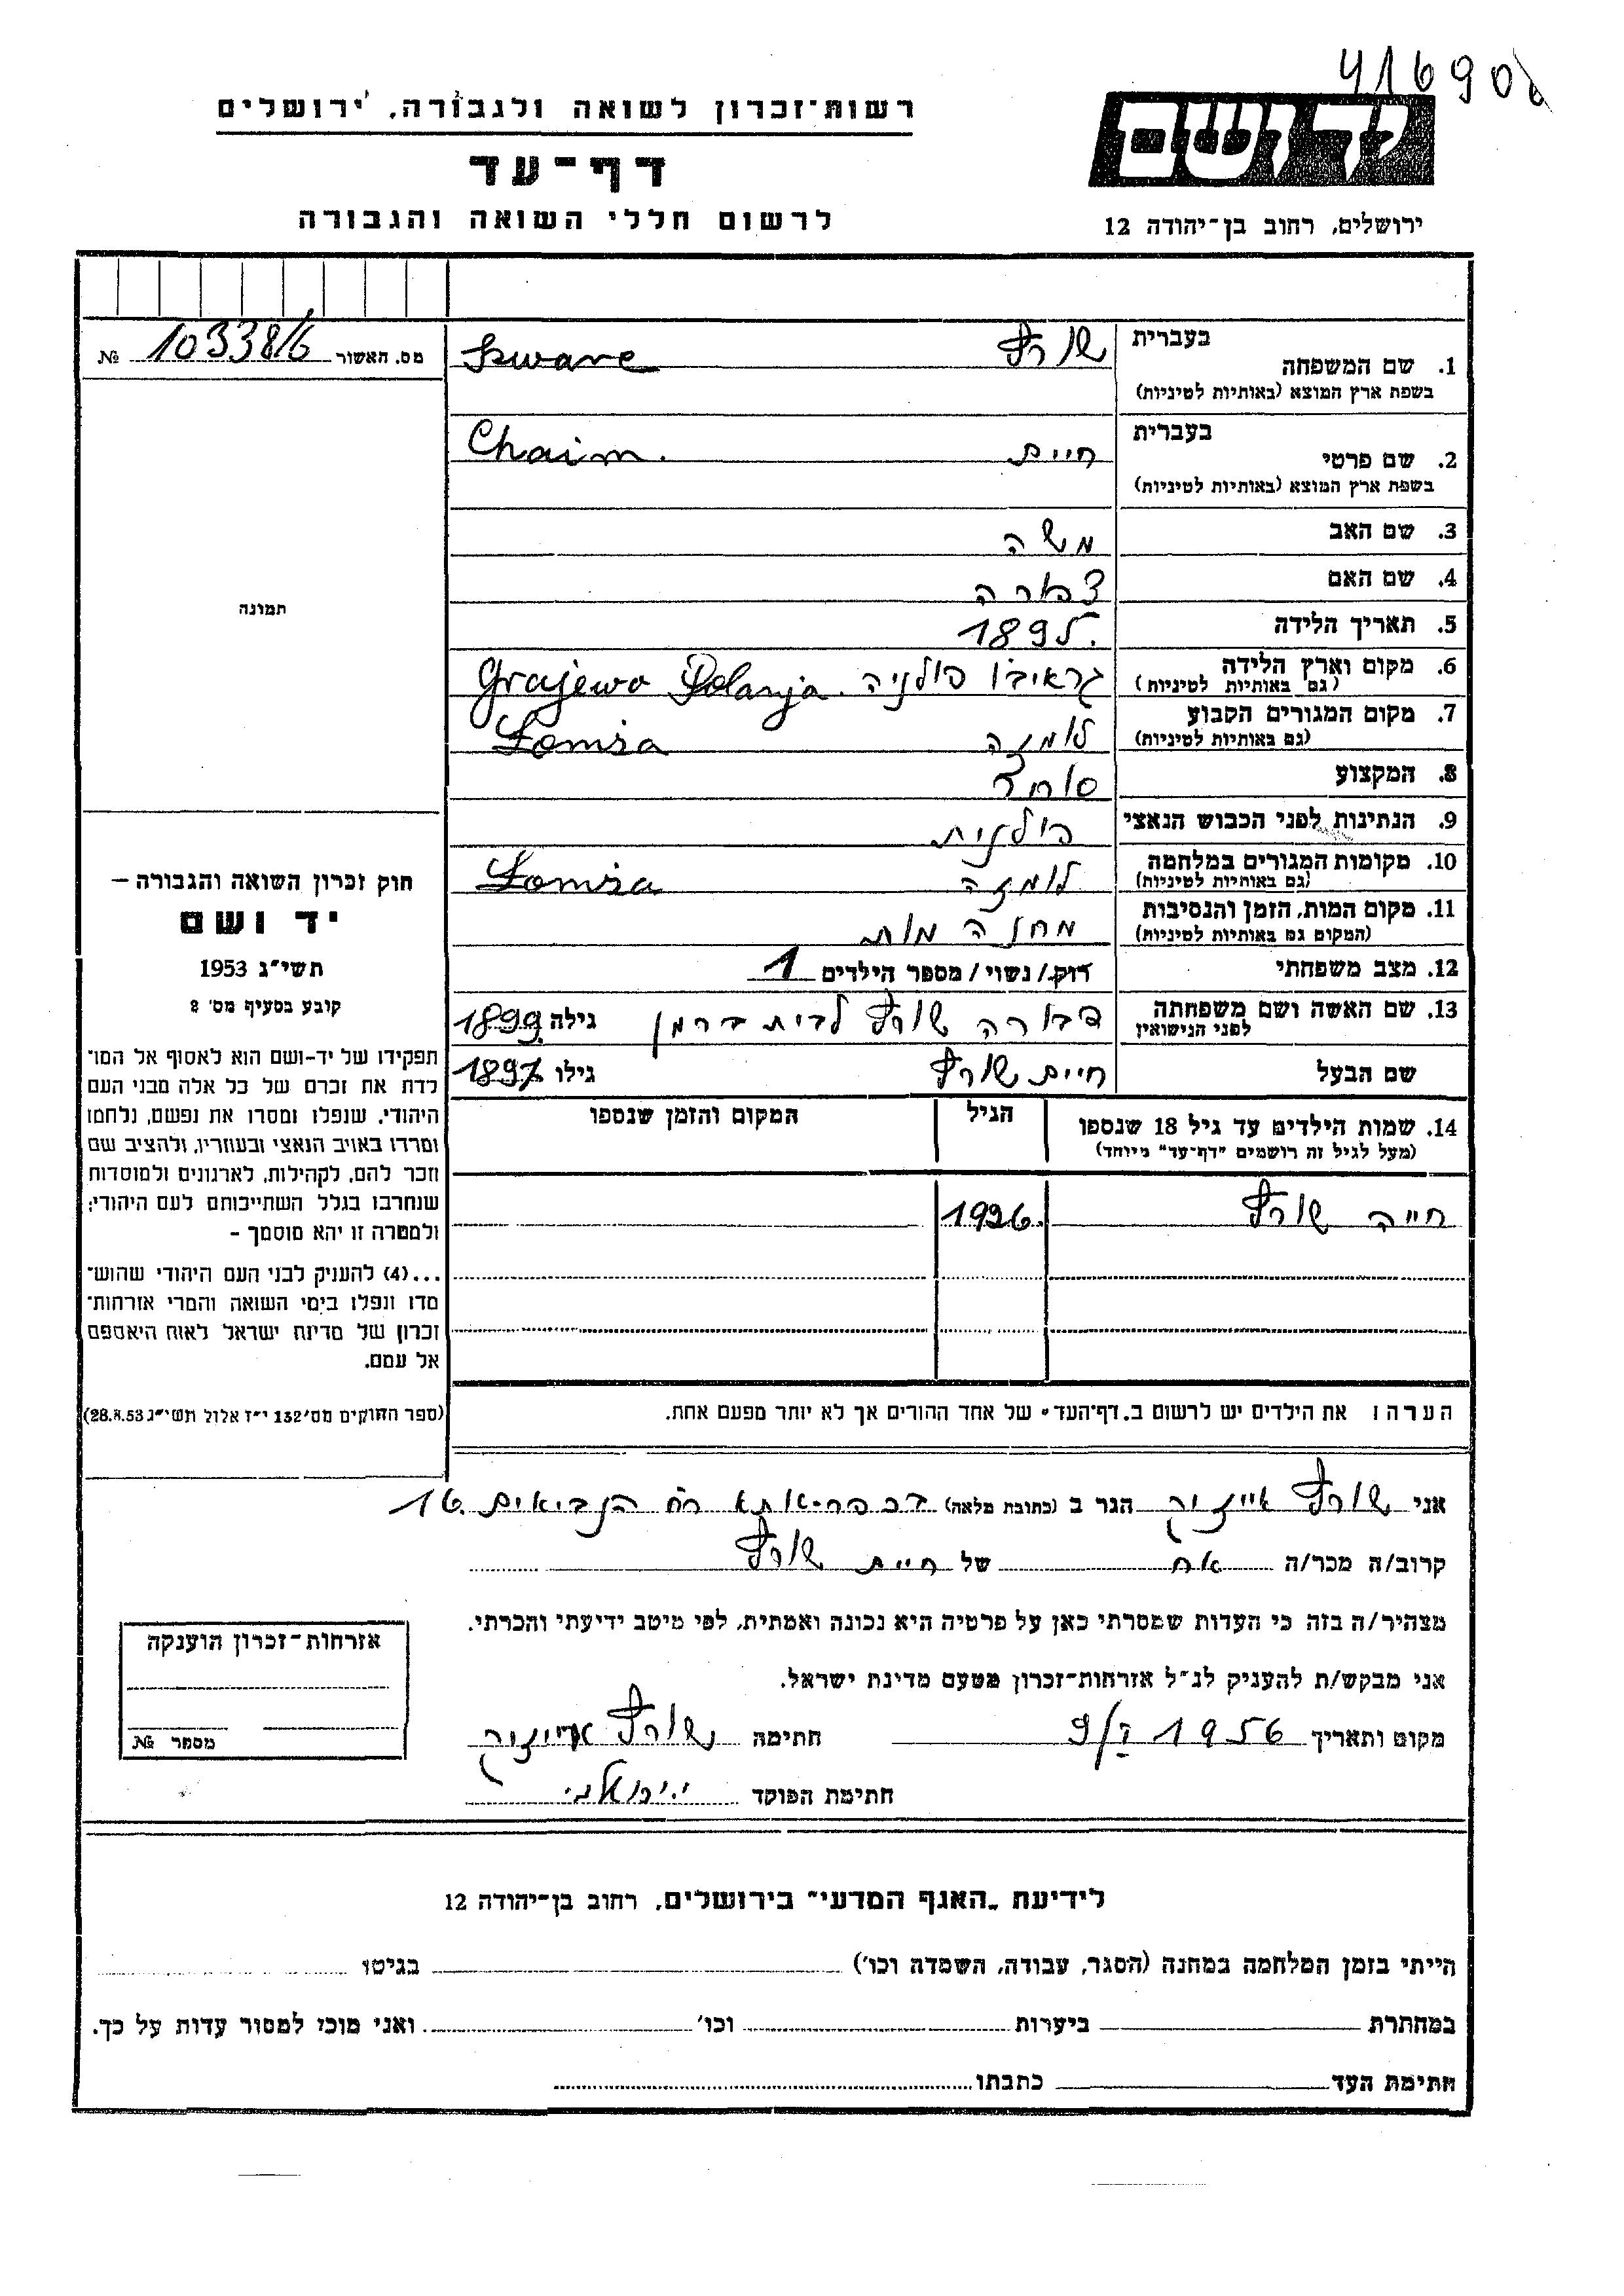 416908
רשות-זכרון לשואה ולגבורה, ירושלים
יד ושם
דף-עד
לרשום חללי השואה והגבורה
ירושלים, רחוב בן-יהודה 12
מס. האשור 10338/6 №
בעברית
1. שם המשפחה
בשפת ארץ המוצא (באותיות לטיניות)
שורץ Szwarc
בעברית
2. שם פרטי
בשפת ארץ המוצא (באותיות לטיניות)
חיים Chaim.
3. שם האב משה
4. שם האם
5. תאריך הלידה
6. מקום וארץ הלידה גראיבו פולניה. Grajewo Polanja
(גם באותיות לטיניות)
7. מקום המגורים הקבוע לומזה Łomża
(גם באותיות לטיניות)
8. המקצוע סוחר
9. הנתינות לפני הכבוש הנאצי פולנית
10. מקומות המגורים במלחמה לומזה Łomża
(גם באותיות לטיניות)
11. מקום המות, הזמן והנסיבות מחנה מות
(המקום גם באותיות לטיניות)
12. מצב משפחתי רוק/ נשוי/ מספר הילדים 1
13. שם האשה ושם משפחתה דבורה שורץ לבית ברמן גילה 1899
לפני הנישואין
שם הבעל חיים שורץ גילו 1897
14. שמות הילדים עד גיל 18 שנספו הגיל המקום והזמן שנספו
(מעל לגיל זה רושמים "דף-עד" מיוחד)
חייה שורץ 1926
הערה: את הילדים יש לרשום ב„דף-העד" של אחד ההורים אך לא יותר מפעם אחת.
תמונה
חוק זכרון השואה והגבורה –
יד ושם
תשי"ג 1953
קובע בסעיף מס' 2
תפקידו של יד-ושם הוא לאסוף אל המו־
לדת את זכרם של כל אלה מבני העם
היהודי, שנפלו ומסרו את נפשם, נלחמו
ומרדו באויב הנאצי ובעוזריו, ולהציב שם
וזכר להם, לקהילות, לארגונים ולמוסדות
שנחרבו בגלל השתייכותם לעם היהודי;
ולמטרה זו יהא מוסמך –
...(4) להעניק לבני העם היהודי שהוש־
מדו ונפלו בימי השואה והמרי אזרחות־
זכרון של מדינת ישראל לאות היאספם
אל עמם.
(ספר החוקים מס' 132 י"ז אלול תשי"ג 28.8.53)
אני שורץ אייזיק הגר ב (כתובת מלאה) בכפר-אתא רח הנביאים 16.
קרוב/ה מכר/ה אח של חיים שורץ
מצהיר/ה בזה כי העדות שמסרתי כאן על פרטיה היא נכונה ואמתית, לפי מיטב ידיעתי והכרתי.
אני מבקש/ת להעניק לנ"ל אזרחות-זכרון מטעם מדינת ישראל.
מקום ותאריך 1956 חתימה שורץ אייזיק
חתימת הפוקד
אזרחות-זכרון הוענקה
מספר №
לידיעת „האגף המדעי" בירושלים, רחוב בן-יהודה 12
הייתי בזמן המלחמה במחנה (הסגר, עבודה, השמדה וכו') בגיטו
במחתרת ביערות וכו' ואני מוכן למסור עדות על כך.
חתימת העד כתבתו